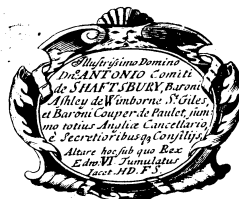 Illustrissimo Domino
Dno. ANTONIO Comiti
de SHAFTSBURY, Baroni
Ashley de Wimborne St. Giles,
et Baroni Couper de Paulet, sum
mo totius Angliæ Cancellario,
è Secretioribusq; Consilijs,
Altare hoc sub quo Rex
Edrv. VI. Tumulatus
Jacet. HD. FS.